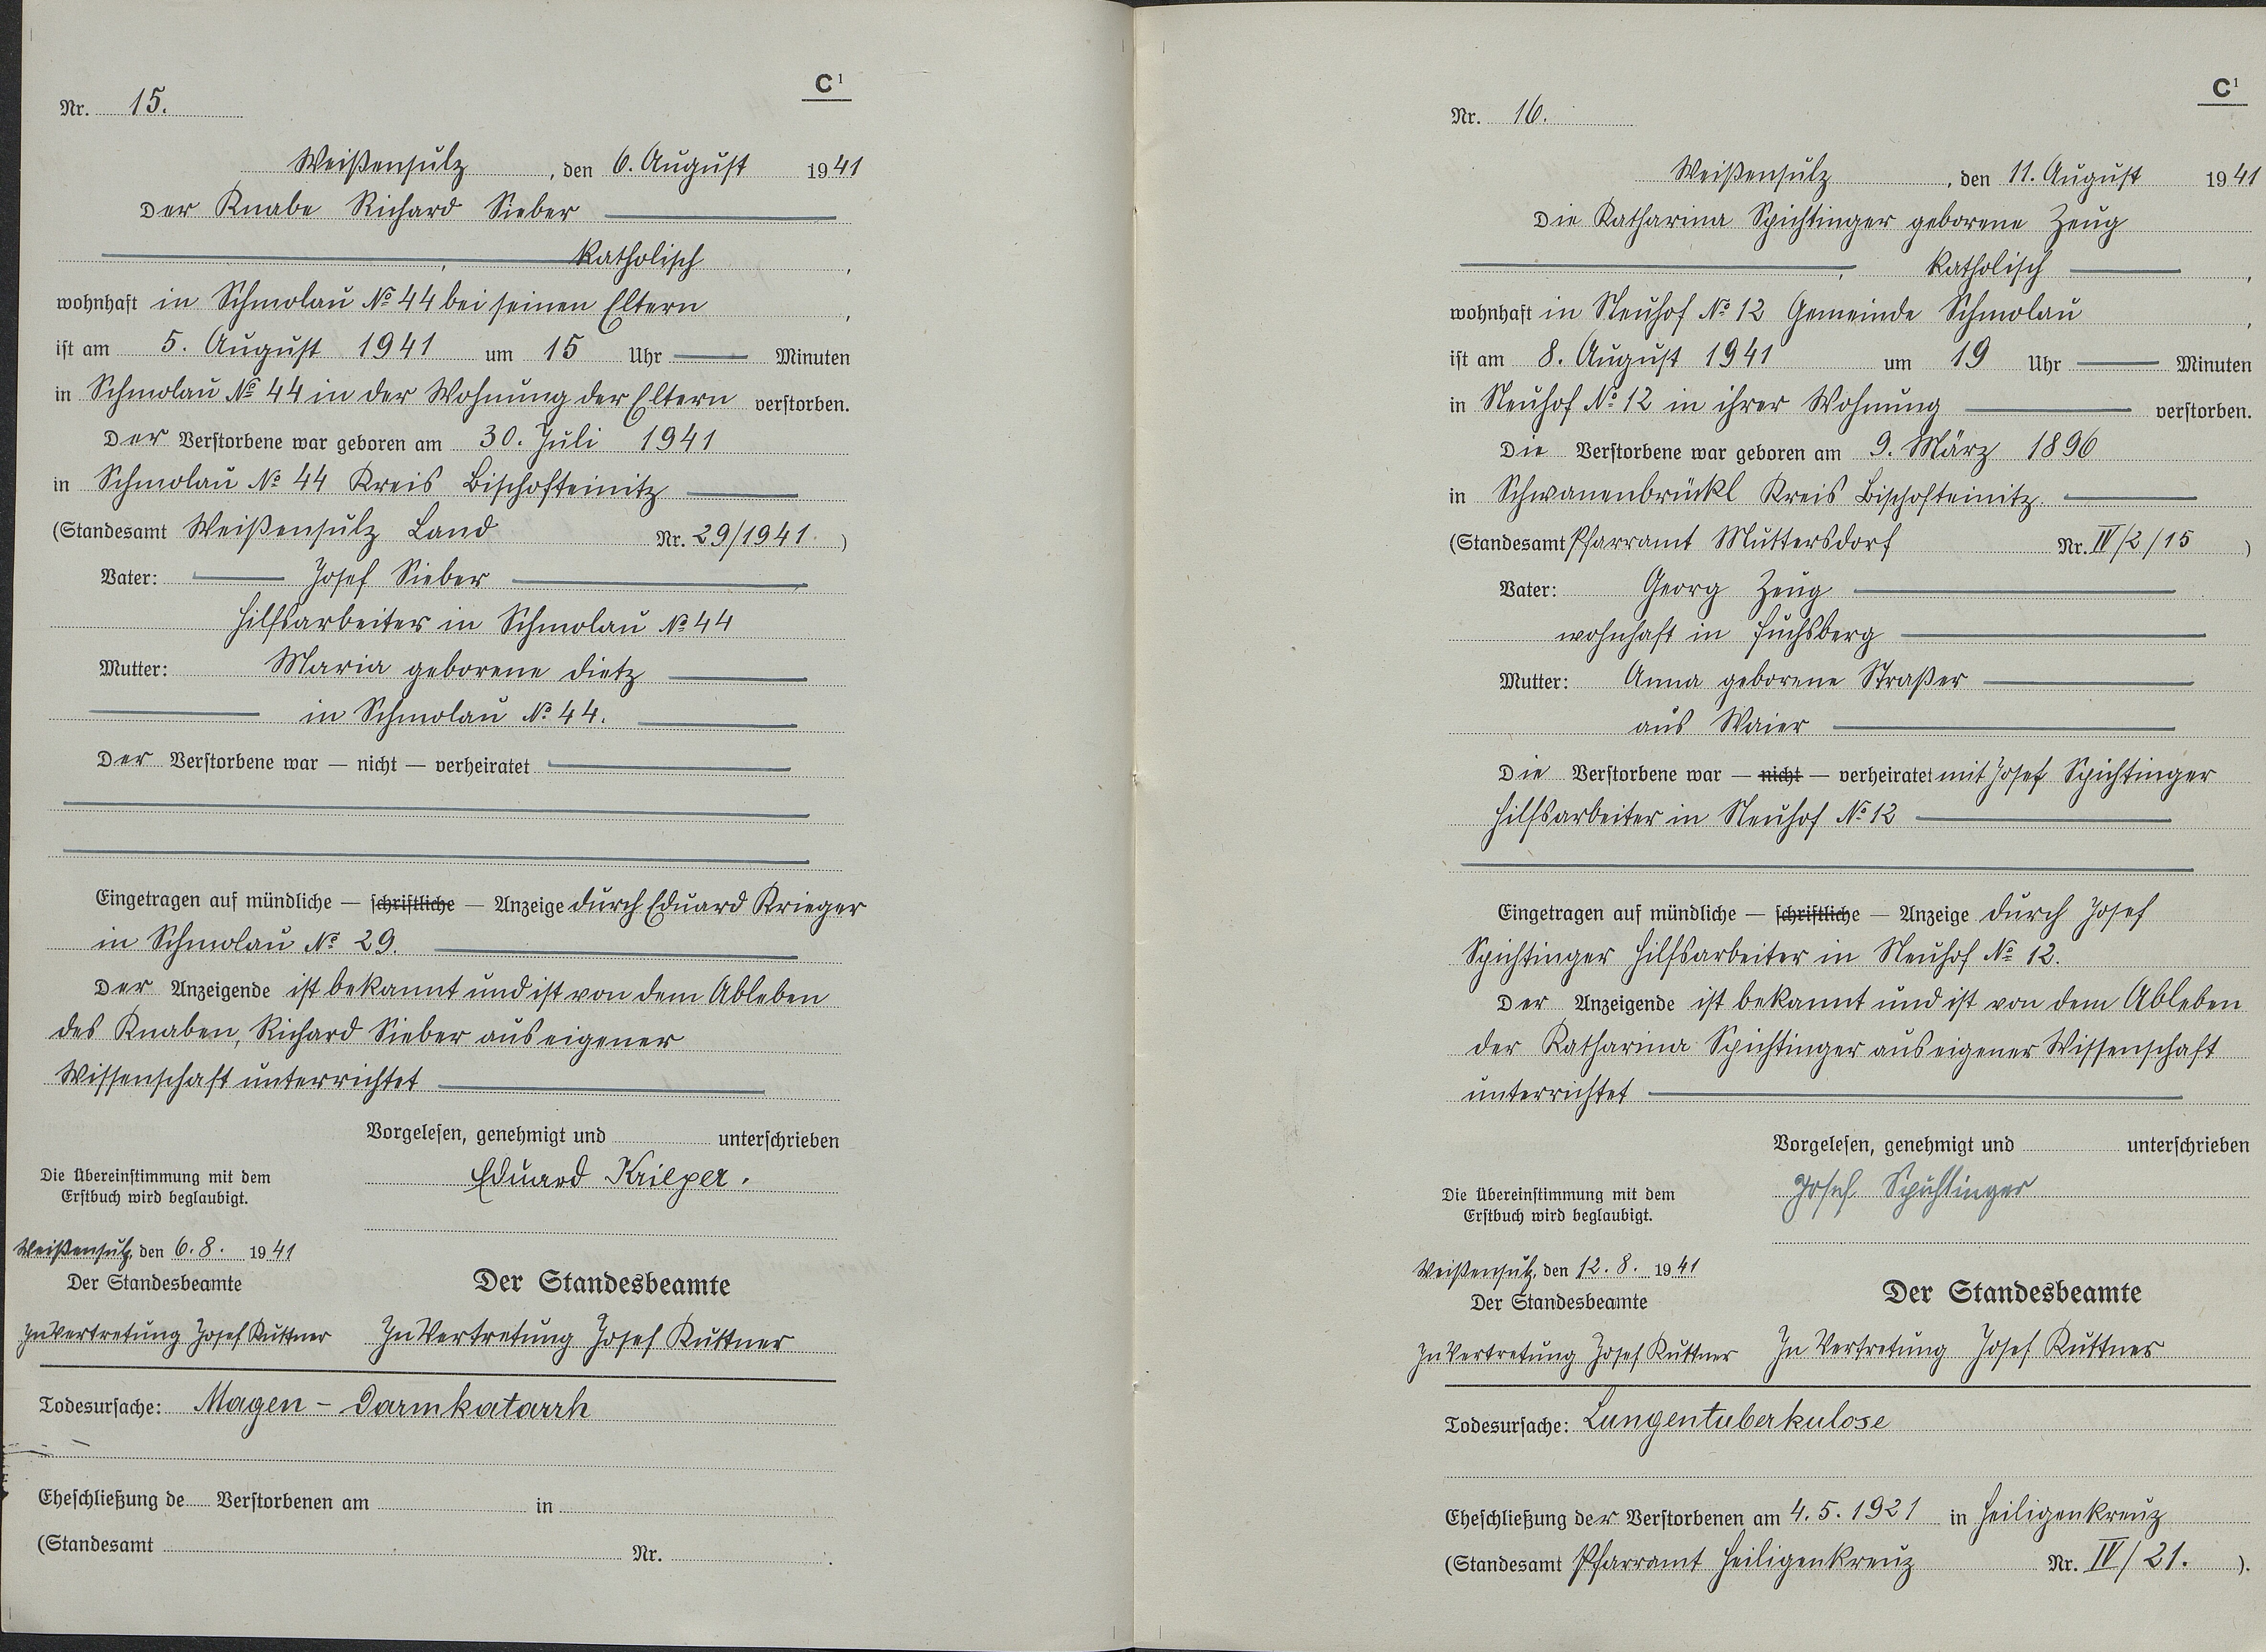 C¹
Nr. 15.
Weißensulz, den 6. August 1941
Der Knabe Richard Sieber
katholisch,
wohnhaft in Schmolau № 44 bei seinen Eltern,
ist am 5. August 1941 um 15 Uhr Minuten
in Schmolau № 44 in der Wohnung der Eltern verstorben.
Der Verstorbene war geboren am 30. Juli 1941
in Schmolau № 44 Kreis Bischofteinitz
(Standesamt Weißensulz Land Nr. 29/1941)
Vater: Josef Sieber
Hilfsarbeiter in Schmolau № 44
Mutter: Maria geborene Dietz
in Schmolau № 44.
Der Verstorbene war — nicht — verheiratet
Eingetragen auf mündliche — schriftliche — Anzeige durch Eduard Krieger
in Schmolau № 29.
Der Anzeigende ist bekannt und ist von dem Ableben
des Knaben, Richard Sieber aus eigener
Wissenschaft unterrichtet
Vorgelesen, genehmigt und unterschrieben
Eduard Krieger.
Die Übereinstimmung mit dem
Erstbuch wird beglaubigt.
Weißensulz, den 6. 8. 1941
Der Standesbeamte
In Vertretung Josef Kuttner
Der Standesbeamte
In Vertretung Josef Kuttner
Todesursache: Magen - Darmkatarrh
Eheschließung de Verstorbenen am in
(Standesamt Nr. .
C¹
Nr. 16.
Weißensulz, den 11. August 1941
Die Katharina Spichtinger geborene Zeug
, katholisch,
wohnhaft in Neuhof № 12 Gemeinde Schmolau,
ist am 8. August 1941 um 19 Uhr Minuten
in Neuhof № 12 in ihrer Wohnung verstorben.
Die Verstorbene war geboren am 9. März 1896
in Schwanenbrückl Kreis Bischofteinitz.
(Standesamt Pfarramt Muttersdorf Nr. IV/2/15)
Vater: Georg Zeug
wohnhaft in Fuchsberg
Mutter: Anna geborene Straßer
aus Waier
Die Verstorbene war — nicht — verheiratet mit Josef Spichtinger
Hilfsarbeiter in Neuhof № 12
Eingetragen auf mündliche — schriftliche — Anzeige durch Josef
Spichtinger Hilfsarbeiter in Neuhof № 12.
Der Anzeigende ist bekannt und ist von dem Ableben
der Katharina Spichtinger aus eigener Wissenschaft
unterrichtet
Vorgelesen, genehmigt und unterschrieben
Josef Spichtinger
Die Übereinstimmung mit dem
Erstbuch wird beglaubigt.
Weißensulz, den 12. 8. 1941
Der Standesbeamte
In Vertretung Josef Kuttner
Der Standesbeamte
In Vertretung Josef Kuttner
Todesursache: Lungentuberkulose
Eheschließung der Verstorbenen am 4. 5. 1921 in Heiligenkreuz
(Standesamt Pfarramt Heiligenkreuz Nr. IV/21.).